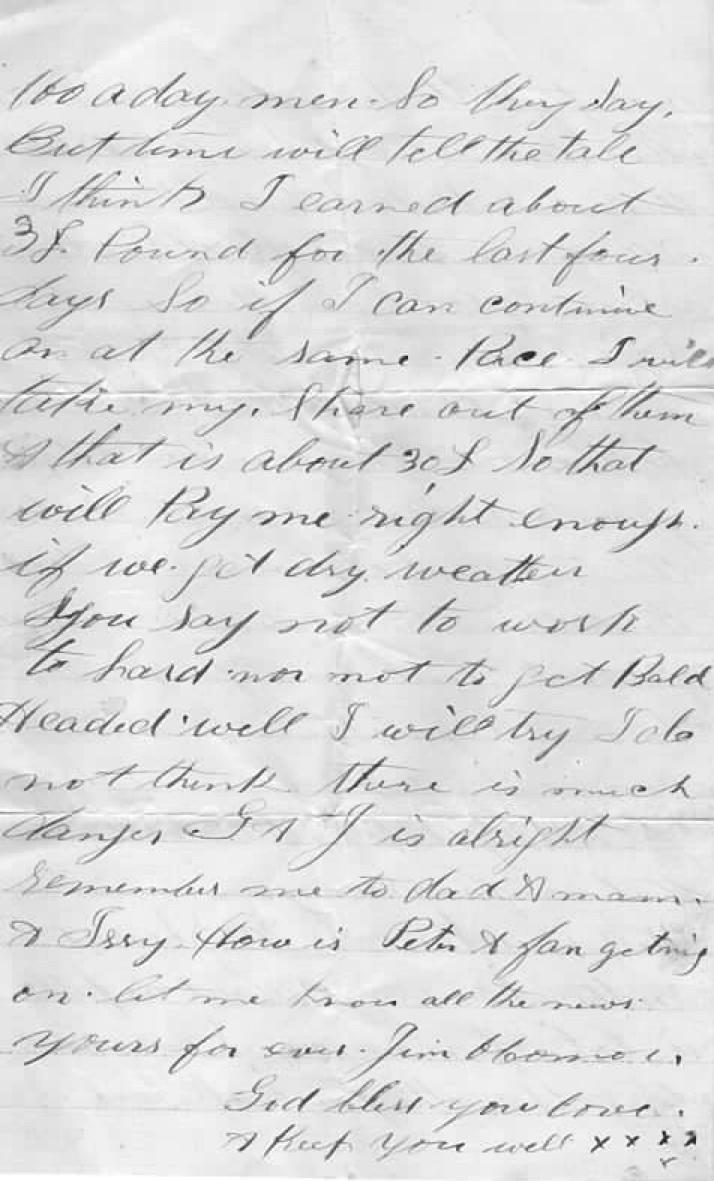 100 a day men. So they say.
But time will tell the tale
I think I earned about
3£ Pound for the last four
days So if I can continue
on at the same Race I will
take my Share out of them
& that is about 30£ So that
will Pay me right enough.
if we get dry weather
you say not to work
to hard nor not to get Bald
Headed well I will try I do
not think there is much
danger G & J is alright
remember me to dad & mam.
& Issy How is Peter & fan getting
on. let me know all the news
yours for ever. Jim
God bless you love.
& Keep you well x x x x
x